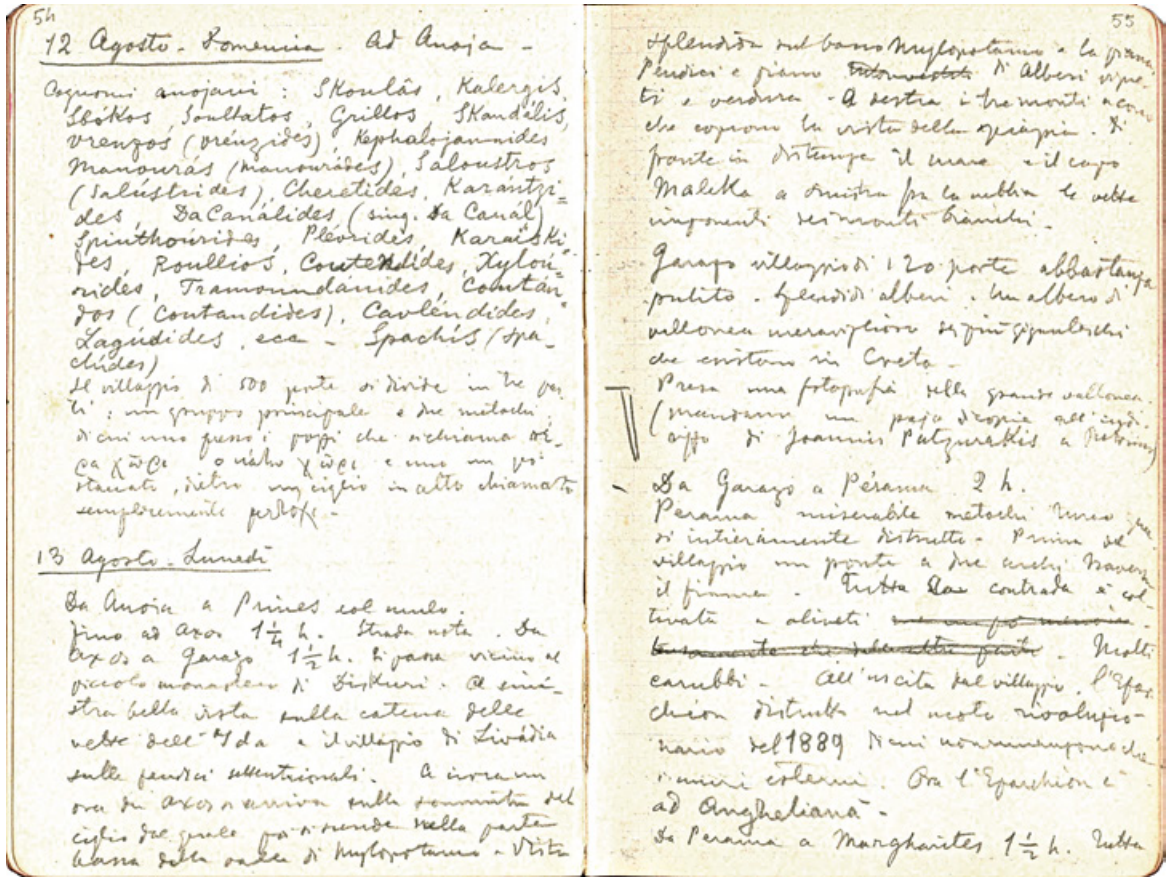 54
12 Agosto - Domenica - Ad Anoja -
Cognomi anojani : Skoulás, Kalergis,
Sbókos, Soultatos, Grillos Skandális,
Vrenzos (vrénzides) Kephalojannides
Manourás (manourádes), Saloustros
(Salústrides), Cheretides, Karantzi=
des, DaCanálides (sing. Da Canál)
Spinthoúrides, Plévrides, Karaiski
des, Roullios, Coutendides, Xyloú=
rides, Tramoundanides, Coutan=
dos (Coutandides), Cavléndides,
Lagúdides, ecc - Spachís (spa_
chides)
Il villaggio di 500 porte si divide in tre par
ti : un gruppo principale e due metochi,
di cui uno presso i pozzi che si chiama
χῶρι o χῶρι e uno un po'
staccato, dietro un ciglio in alto chiamato
semplicemente
13 Agosto - Lunedì
Da Anoja a Prines col mulo.
fino ad Axos 1 1/4 h. Strada nota. Da
Axos a Garazo 1 1/2 h. Si passa vicino al
piccolo monastero di Diskuri. A sini_
stra bella vista sulla catena delle
vette dell'Ida e il villaggio di Livádia
sulle pendici settentrionali. A circa un
ora da Axos si arriva sulla sommità del
ciglio dal quale poi si scende nella parte
bassa della valle di Mylopotamo - Vista
55
splendida sul basso Mylopotamo e la piana.
Pendici e piano di Alberi vigne
ti e verdura. A destra i tre monti a cono
che coprono la vista della spiaggia. Di
fronte in distanza il mare e il capo
Maleka a sinistra fra la nebbia le vette
imponenti dei monti bianchi.
Garazo villaggio di 120 porte abbastanza
pulito. Splendidi alberi. Un albero di
vallonea meraviglioso dei più giganteschi
che esistano in Creta.
Presa una fotografia della grande vallonea.
(mandarne un paja di copie all'indi
rizzo di Joannis Patzurakis a Retimno)
- Da Garazo a Pérama 2 h.
Perama miserabile metochi turco qua
si intieramente distrutto. Prima del
villaggio un ponte a due archi traversa
il fiume. Tutta la contrada è col_
tivata a oliveti
. Molti
carubbi - All'uscita dal villaggio, l'Epar
chion distrutto nel moto rivoluzio-
nario del 1889 di cui non rimangono che
i muri esterni. Ora l'Eparchion è
ad Angheliana -
Da Perama a Margharites 1 1/2 h. Tutta